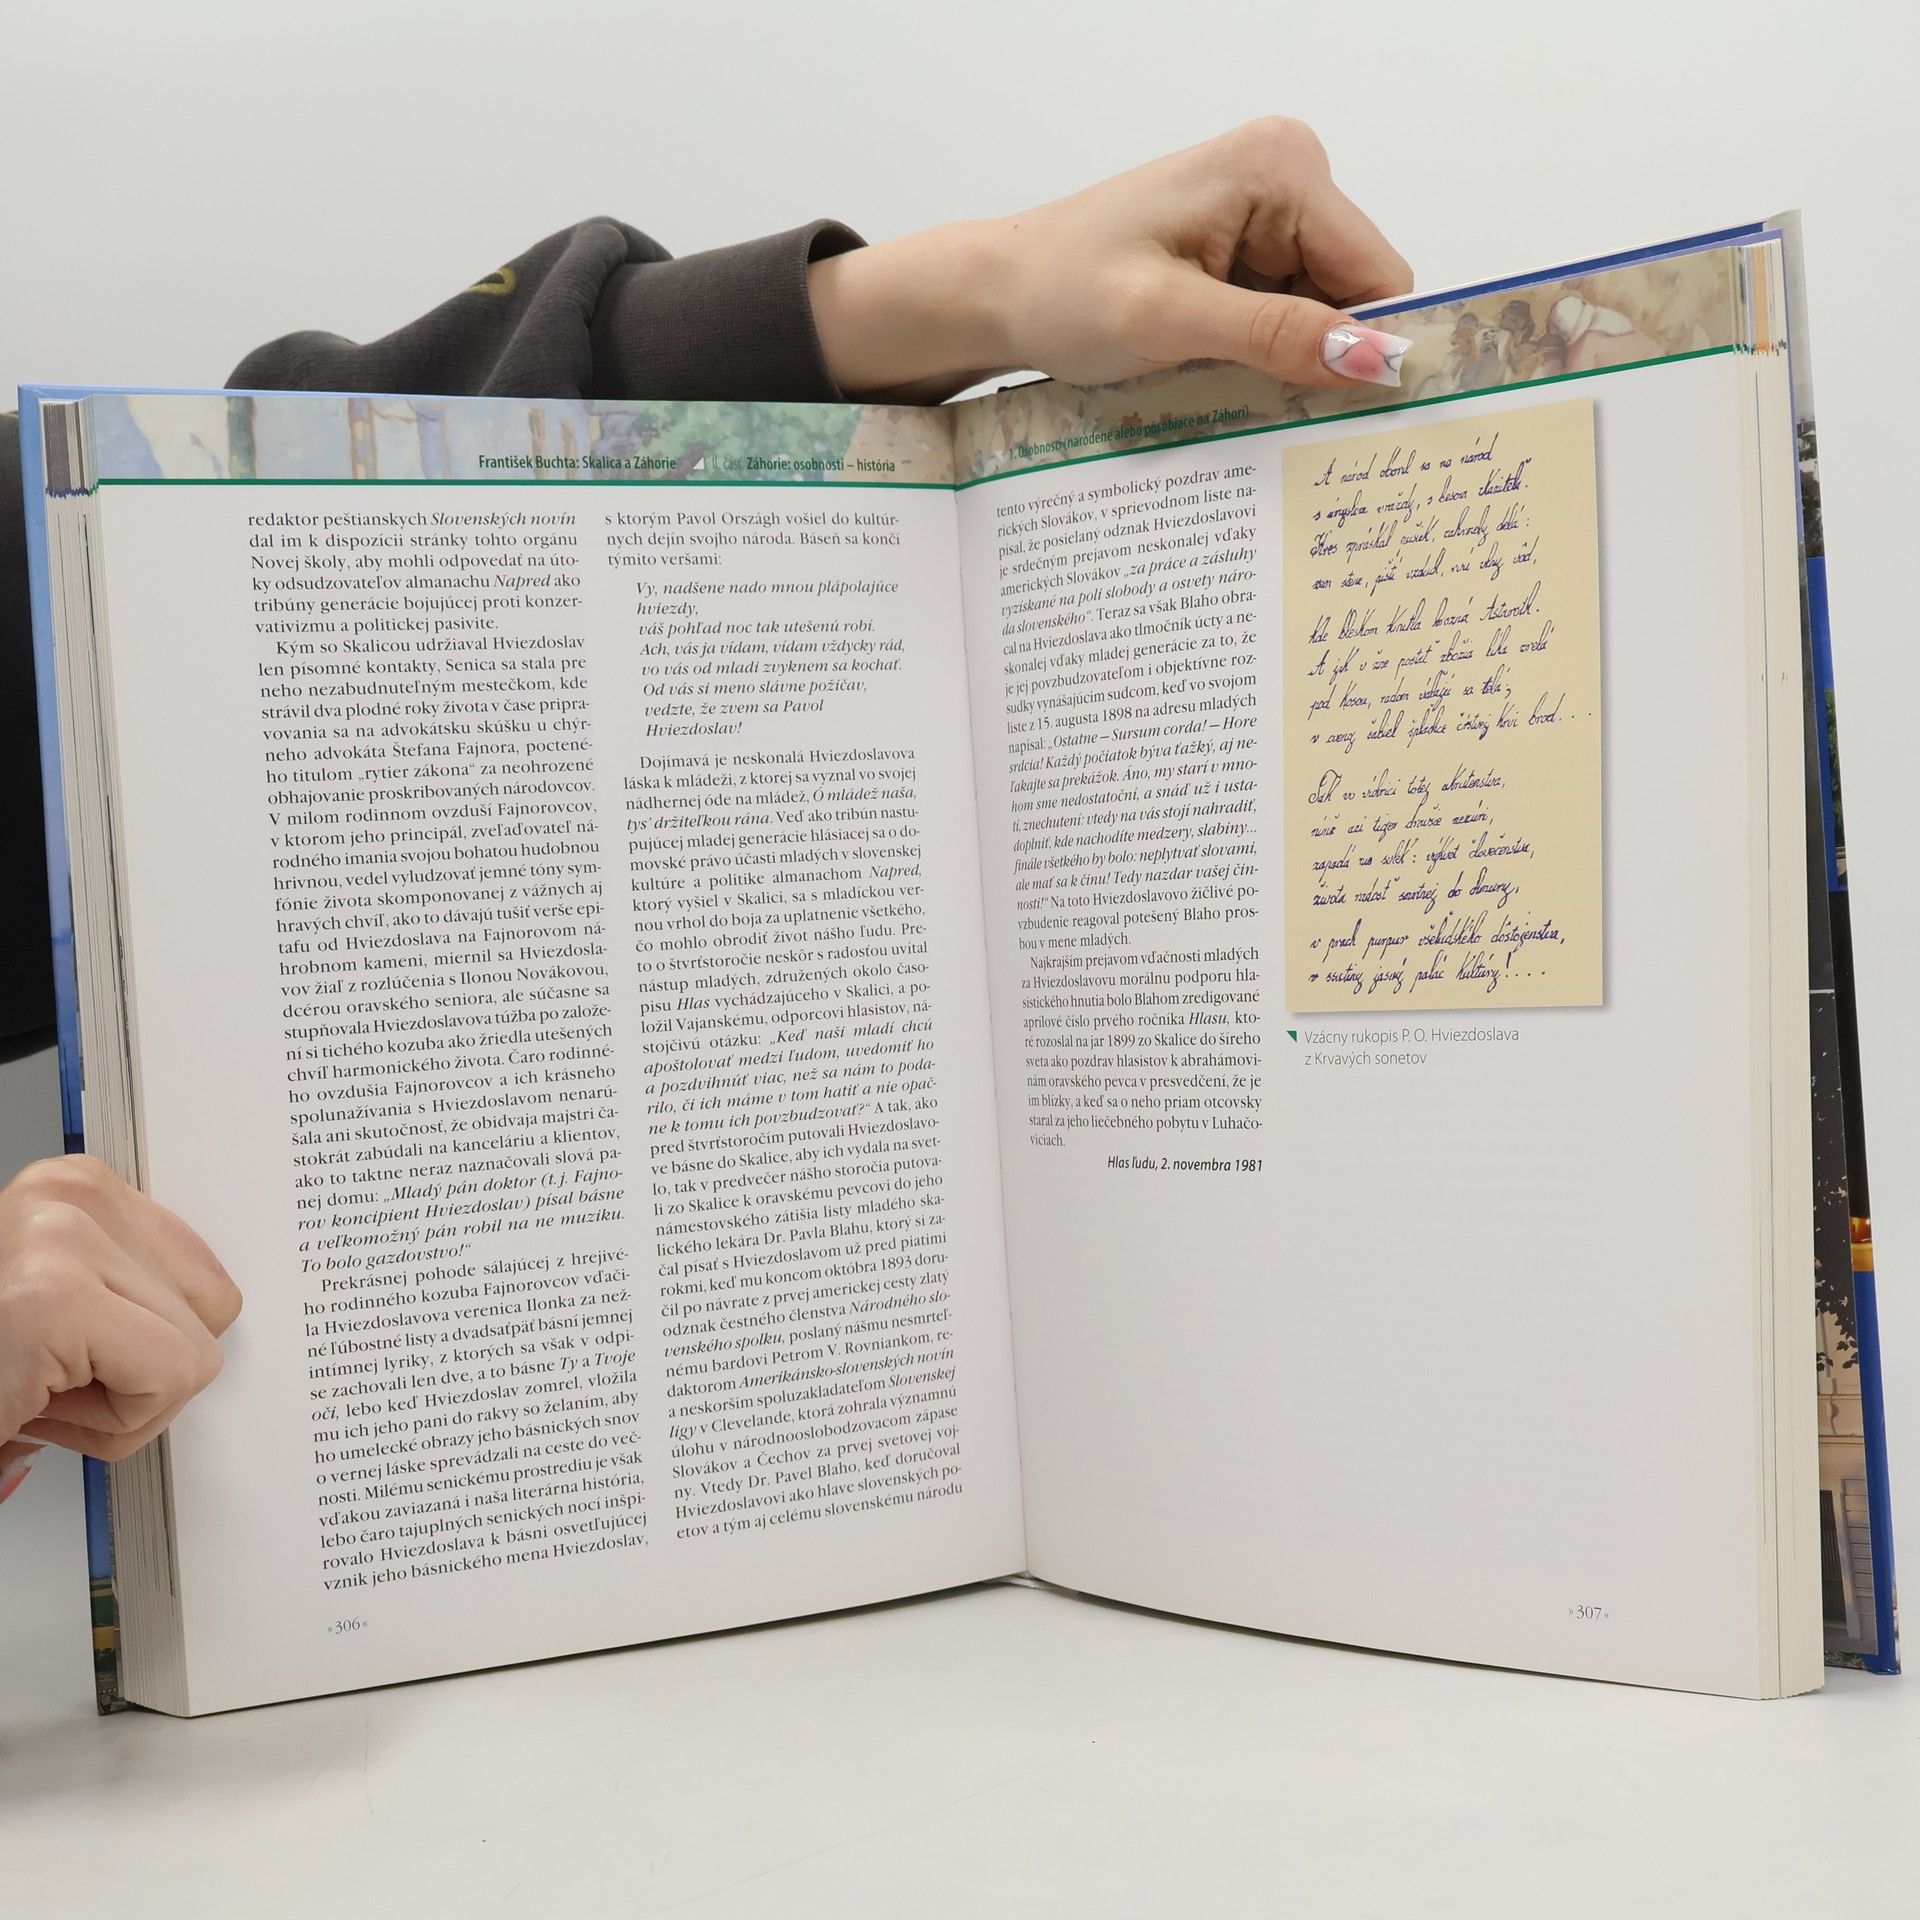 František Buchta: Skalica a Záhorie II. časť Záhorie: osobnosti – história
redaktor peštianskych Slovenských novín
dal im k dispozícii stránky tohto orgánu
Novej školy, aby mohli odpovedať na úto-
ky odsudzovateľov almanachu Napred ako
tribúny generácie bojujúcej proti konzer-
vativizmu a politickej pasivite.
Kým so Skalicou udržiaval Hviezdoslav
len písomné kontakty, Senica sa stala pre
neho nezabudnuteľným mestečkom, kde
strávil dva plodné roky života v čase pripra-
vovania sa na advokátsku skúšku u chýr-
neho advokáta Štefana Fajnora, poctené-
ho titulom „rytier zákona“ za neohrozené
obhajovanie proskribovaných národovcov.
V milom rodinnom ovzduší Fajnorovcov,
v ktorom jeho principál, zveľaďovateľ ná-
rodného imania svojou bohatou hudobnou
hrivnou, vedel vyludzovať jemné tóny sym-
fónie života skomponovanej z vážnych aj
hravých chvíľ, ako to dávajú tušiť verše epi-
tafu od Hviezdoslava na Fajnorovom ná-
hrobnom kameni, miernil sa Hviezdosla-
vov žiaľ z rozlúčenia s Ilonou Novákovou,
dcérou oravského seniora, ale súčasne sa
stupňovala Hviezdoslavova túžba po založe-
ní si tichého kozuba ako žriedla utešených
chvíľ harmonického života. Čaro rodinné-
ho ovzdušia Fajnorovcov a ich krásneho
spolunažívania s Hviezdoslavom nenarú-
šala ani skutočnosť, že obidvaja majstri ča-
stokrát zabúdali na kanceláriu a klientov,
ako to taktne neraz naznačovali slová pa-
nej domu: „Mladý pán doktor (t. j. Fajno-
rov koncipient Hviezdoslav) písal básne
a veľkomožný pán robil na ne muziku.
To bolo gazdovstvo!“
Prekrásnej pohode sálajúcej z hrejivé-
ho rodinného kozuba Fajnorovcov vďači-
la Hviezdoslavova verenica Ilonka za než-
né ľúbostné listy a dvadsaťpäť básní jemnej
intímnej lyriky, z ktorých sa však v odpi-
se zachovali len dve, a to básne Ty a Tvoje
oči, lebo keď Hviezdoslav zomrel, vložila
mu ich jeho pani do rakvy so želaním, aby
ho umelecké obrazy jeho básnických snov
o vernej láske sprevádzali na ceste do več-
nosti. Milému senickému prostrediu je však
vďakou zaviazaná i naša literárna história,
lebo čaro tajuplných senických nocí inšpi-
rovalo Hviezdoslava k básni osvetľujúcej
vznik jeho básnického mena Hviezdoslav,
s ktorým Pavol Országh vošiel do kultúr-
nych dejín svojho národa. Báseň sa končí
týmito veršami:
Vy, nadšene nado mnou plápolajúce
hviezdy,
váš pohľad noc tak utešenú robí.
Ach, vás ja vídam, vídam vždycky rád,
vo vás od mladi zvyknem sa kochať.
Od vás si meno slávne požičav,
vedzte, že zvem sa Pavol
Hviezdoslav!
Dojímavá je neskonalá Hviezdoslavova
láska k mládeži, z ktorej sa vyznal vo svojej
nádhernej óde na mládež, Ó mládež naša,
tys' držiteľkou rána. Veď ako tribún nastu-
pujúcej mladej generácie hlásiacej sa o do-
movské právo účasti mladých v slovenskej
kultúre a politike almanachom Napred,
ktorý vyšiel v Skalici, sa s mladíckou ver-
nou vrhol do boja za uplatnenie všetkého,
čo mohlo obrodiť život nášho ľudu. Pre-
to o štvrťstoročie neskôr s radosťou uvítal
nástup mladých, združených okolo časo-
pisu Hlas vychádzajúceho v Skalici, a po-
ložil Vajanskému, odporcovi hlasistov, ná-
stojčivú otázku: „Keď naši mladí chcú
apoštolovať medzi ľudom, uvedomiť ho
a pozdvihnúť viac, než sa nám to poda-
rilo, či ich máme v tom hatiť a nie opač-
ne k tomu ich povzbudzovať?“ A tak, ako
pred štvrťstoročím putovali Hviezdoslavo-
ve básne do Skalice, aby ich vydala na svet-
lo, tak v predvečer nášho storočia putova-
li zo Skalice k oravskému pevcovi do jeho
námestovského zátišia listy mladého ska-
lického lekára Dr. Pavla Blahu, ktorý si za-
čal písať s Hviezdoslavom už pred piatimi
rokmi, keď mu koncom októbra 1893 doru-
čil po návrate z prvej americkej cesty zlatý
odznak čestného členstva Národného slo-
venského spolku, poslaný nášmu nesmrteľ-
nému bardovi Petrom V. Rovniankom, re-
daktorom Amerikánsko-slovenských novín
a neskorším spoluzakladateľom Slovenskej
ligy v Clevelande, ktorá zohrala významnú
úlohu v národnooslobodzovacom zápase
Slovákov a Čechov za prvej svetovej voj-
ny. Vtedy Dr. Pavel Blaho, keď doručoval
Hviezdoslavovi ako hlave slovenských po-
etov a tým aj celému slovenskému národu
»306«
1. Osobnosti (narodené alebo pôsobiace na Záhorí)
tento výrečný a symbolický pozdrav ame-
rických Slovákov, v sprievodnom liste na-
písal, že posielaný odznak Hviezdoslavovi
je srdečným prejavom neskonalej vďaky
amerických Slovákov „za práce a zásluhy
vyzískané na poli slobody a osvety náro-
da slovenského“. Teraz sa však Blaho obra-
cal na Hviezdoslava ako tlmočník úcty a ne-
skonalej vďaky mladej generácie za to, že
je jej povzbudzovateľom i objektívne roz-
sudky vynášajúcim sudcom, keď vo svojom
liste z 15. augusta 1898 na adresu mladých
napísal: „Ostatne – Sursum corda! – Hore
srdcia! Každý počiatok býva ťažký, aj ne-
ľakajte sa prekážok. Áno, my starí v mno-
hom sme nedostatoční, a snáď už i usta-
tí, znechutení: vtedy na vás stojí nahradiť,
doplniť, kde nachodíte medzery, slabiny...
finále všetkého by bolo: neplytvať slovami,
ale mať sa k činu! Tedy nazdar vašej čin-
nosti!“ Na toto Hviezdoslavovo žičlivé po-
vzbudenie reagoval potešený Blaho pros-
bou v mene mladých.
Najkrajším prejavom vďačnosti mladých
za Hviezdoslavovu morálnu podporu hla-
sistického hnutia bolo Blahom zredigované
aprílové číslo prvého ročníka Hlasu, kto-
ré rozoslal na jar 1899 zo Skalice do šíreho
sveta ako pozdrav hlasistov k abrahámovi-
nám oravského pevca v presvedčení, že je
im blízky, a keď sa o neho priam otcovsky
staral za jeho liečebného pobytu v Luhačo-
viciach.
Hlas ľudu, 2. novembra 1981
A národ oboril sa na národ
s úmyslom vraždy, s besom skaziteľa.
zem stene, piští vzduch, vrú vlny vôd,
kde bleskom kmitla hrozná Astaroth.
A jak v žne postať zbožia ľahá zrelá
pod kosou, radom váľajú sa telá;
v cveng šabieľ špľachce čerstvej krvi brod....
Tak vo vidnici totej ukrutenstva,
života radosť smrtnej do chmury,
v prach purpur všeľudského dôstojenstva,
v ssutiny jasný palác kultúry!....
Vzácny rukopis P. O. Hviezdoslava
z Krvavých sonetov
»307«